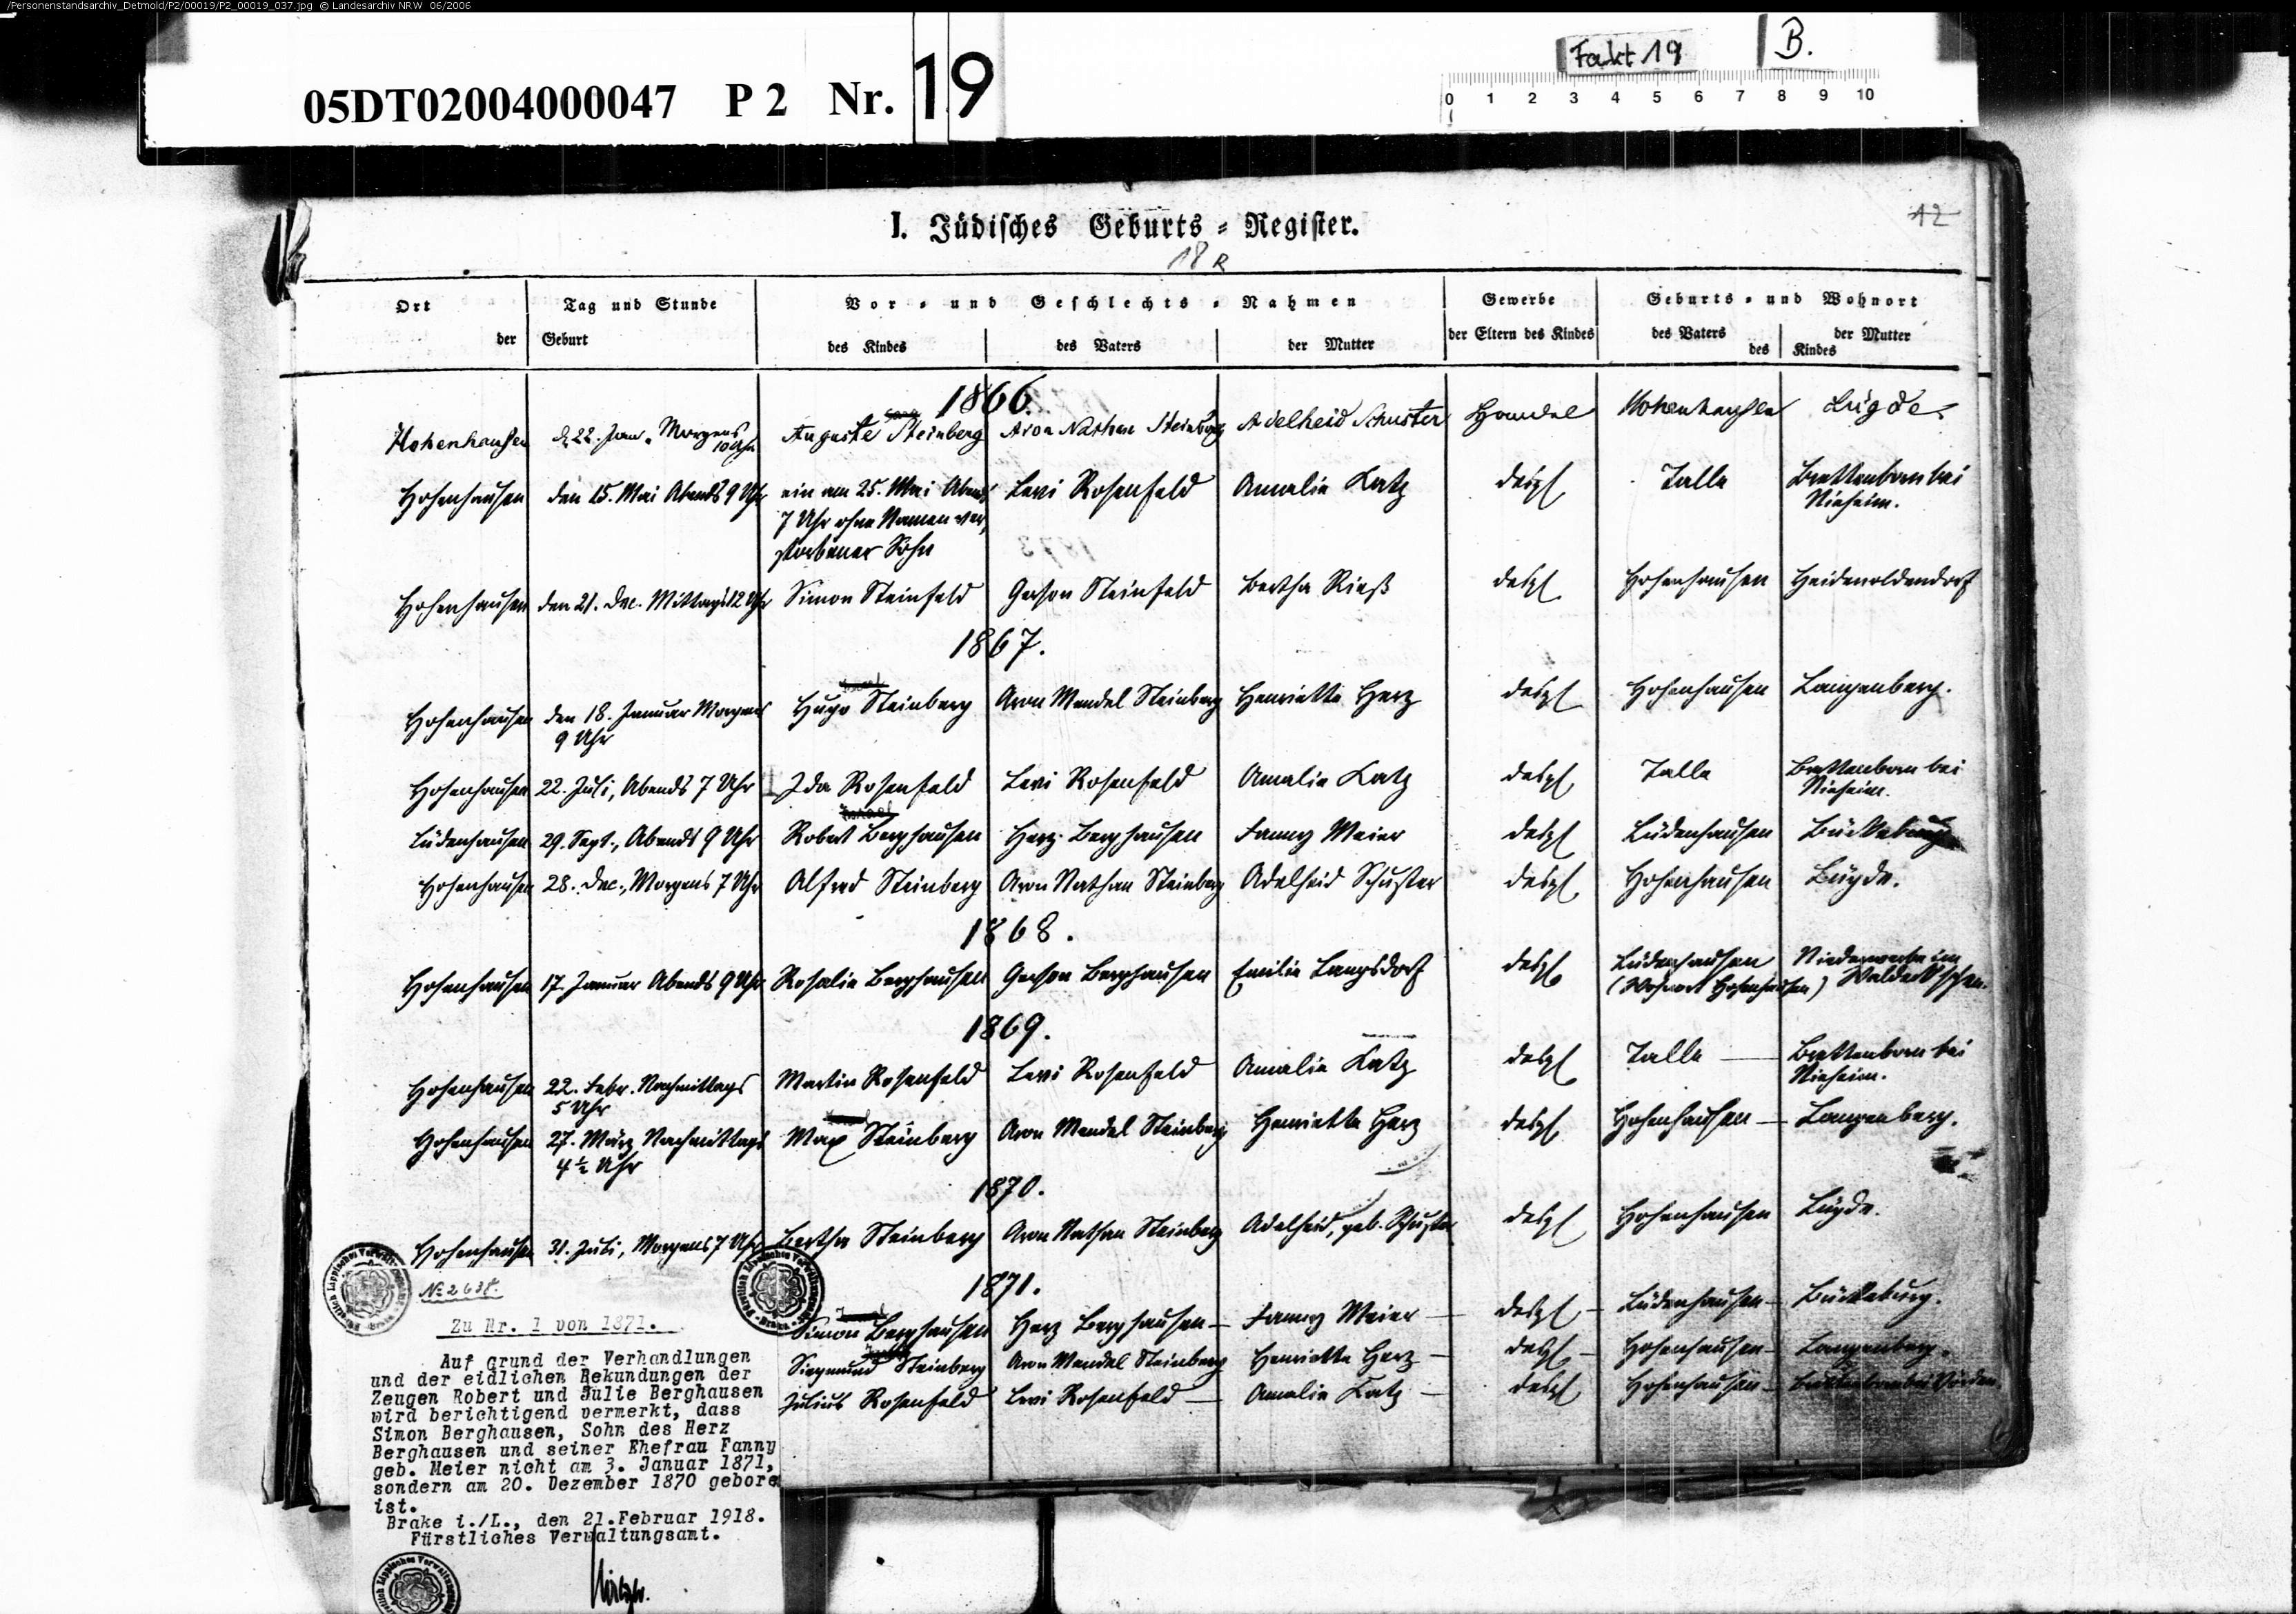 /Personenstandsarchiv_Detmold/P2/00019/P2_00019_037.jpg © Landesarchiv NRW 06/2006
Fakt 19 B.
05DT02004000047 P 2 Nr. 19
0 1 2 3 4 5 6 7 8 9 10
I. Jüdisches Geburts-Register.
12
18 R
Ort Tag und Stunde Vor- und Geschlechts-Nahmen Gewerbe Geburts- und Wohnort
der Geburt des Kindes des Vaters der Mutter der Eltern des Kindes des Vaters der Mutter
des Kindes
1866.
Hohenhausen d. 22. Jan. Morgens Auguste Steinberg Aron Nathan Steinberg Adelheid Schuster Handel Hohenhausen Lügde
10 Uhr
Hohenhausen den 15. Mai Abends 9 Uhr ein am 25. Mai Abends Levi Rosenfeld Amalie Katz desgl. Talle Brettenborn bei
7 Uhr ohne Namen ver- Nieheim.
storbener Sohn
Hohenhausen den 21. Dec. Mittags 12 Uhr Simon Steinfeld Gerson Steinfeld Bertha Rieß desgl. Hohenhausen Heidenoldendorf
1867.
Hohenhausen den 18. Januar Morgens Hugo Steinberg Aron Mendel Steinberg Henriette Herz desgl. Hohenhausen Langenberg.
9 Uhr
Hohenhausen 22. Juli, Abends 7 Uhr Ida Rosenfeld Levi Rosenfeld Amalie Katz desgl. Talle Brettenborn bei
Nieheim.
Lüdenhausen 29. Sept., Abends 9 Uhr Robert Berghausen Herz Berghausen Fanny Meier desgl. Lüdenhausen Bückeburg
Hohenhausen 28. Dec., Morgens 7 Uhr Alfred Steinberg Aron Nathan Steinberg Adelheid Schuster desgl. Hohenhausen Lügde.
1868.
Hohenhausen 17. Januar Abends 9 Uhr Rosalie Berghausen Gerson Berghausen Emilie Langsdorf desgl. Lüdenhausen Niederwerbe im
(Wohnort Hohenhausen) Waldeckschen.
1869.
Hohenhausen 22. Febr. Nachmittags Martin Rosenfeld Levi Rosenfeld Amalie Katz desgl. Talle — Brettenborn bei
5 Uhr Nieheim.
Hohenhausen 27. März Nachmittags Max Steinberg Aron Mendel Steinberg Henriette Herz desgl. Hohenhausen — Langenberg.
4½ Uhr
1870.
Hohenhausen 31. Juli, Morgens 7 Uhr Bertha Steinberg Aron Nathan Steinberg Adelheid, geb. Schuster desgl. Hohenhausen Lügde.
1871.
Simon Berghausen Herz Berghausen — Fanny Meier — desgl. — Lüdenhausen — Bückeburg.
Siegmund Steinberg Aron Mendel Steinberg Henriette Herz — desgl. — Hohenhausen — Langenberg.
Julius Rosenfeld Levi Rosenfeld — Amalie Katz — desgl. Hohenhausen —
№ 2638.
Zu Nr. 1 von 1871.
Auf grund der Verhandlungen
und der eidlichen Bekundungen der
Zeugen Robert und Julie Berghausen
wird berichtigend vermerkt, dass
Simon Berghausen, Sohn des Herz
Berghausen und seiner Ehefrau Fanny
geb. Meier nicht am 3. Januar 1871,
sondern am 20. Dezember 1870 gebore
ist.
Brake i./L., den 21.Februar 1918.
Fürstliches Verwaltungsamt.